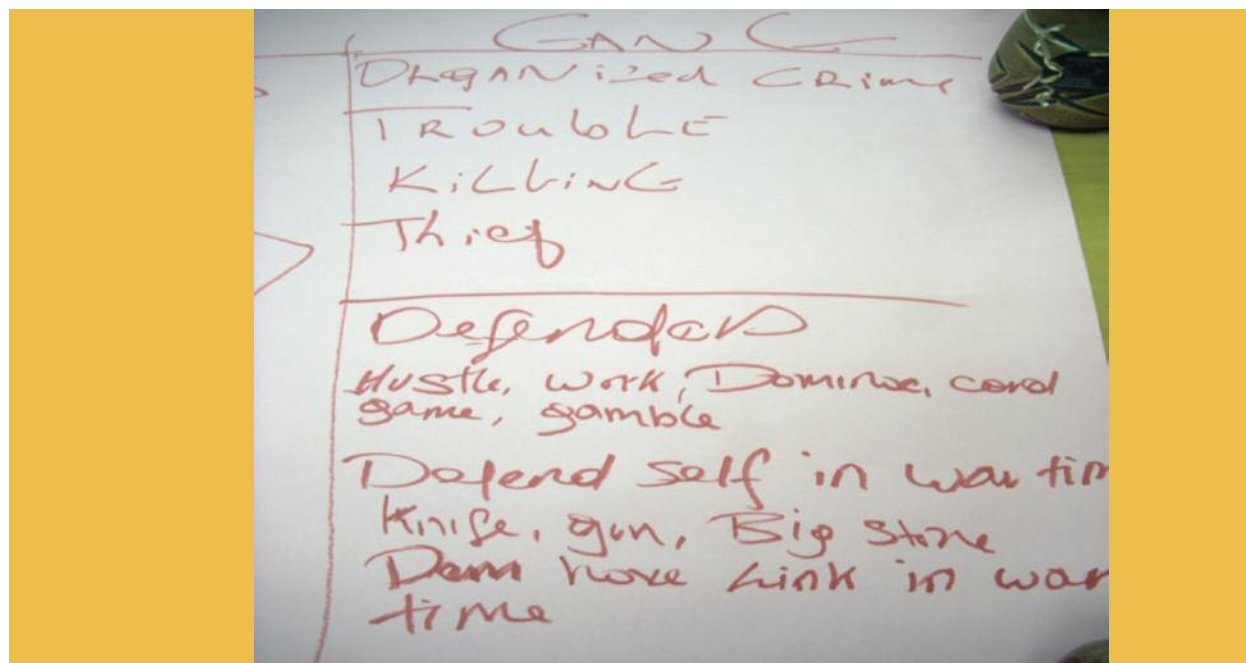 GANG
ORGANized CRime
TROubLE
KiLLiNG
Thief
Defenders
Hustle, work, Domino, card
game, gamble
Defend self in war tim
Knife, gun, Big stone
Dem have Link in war
time